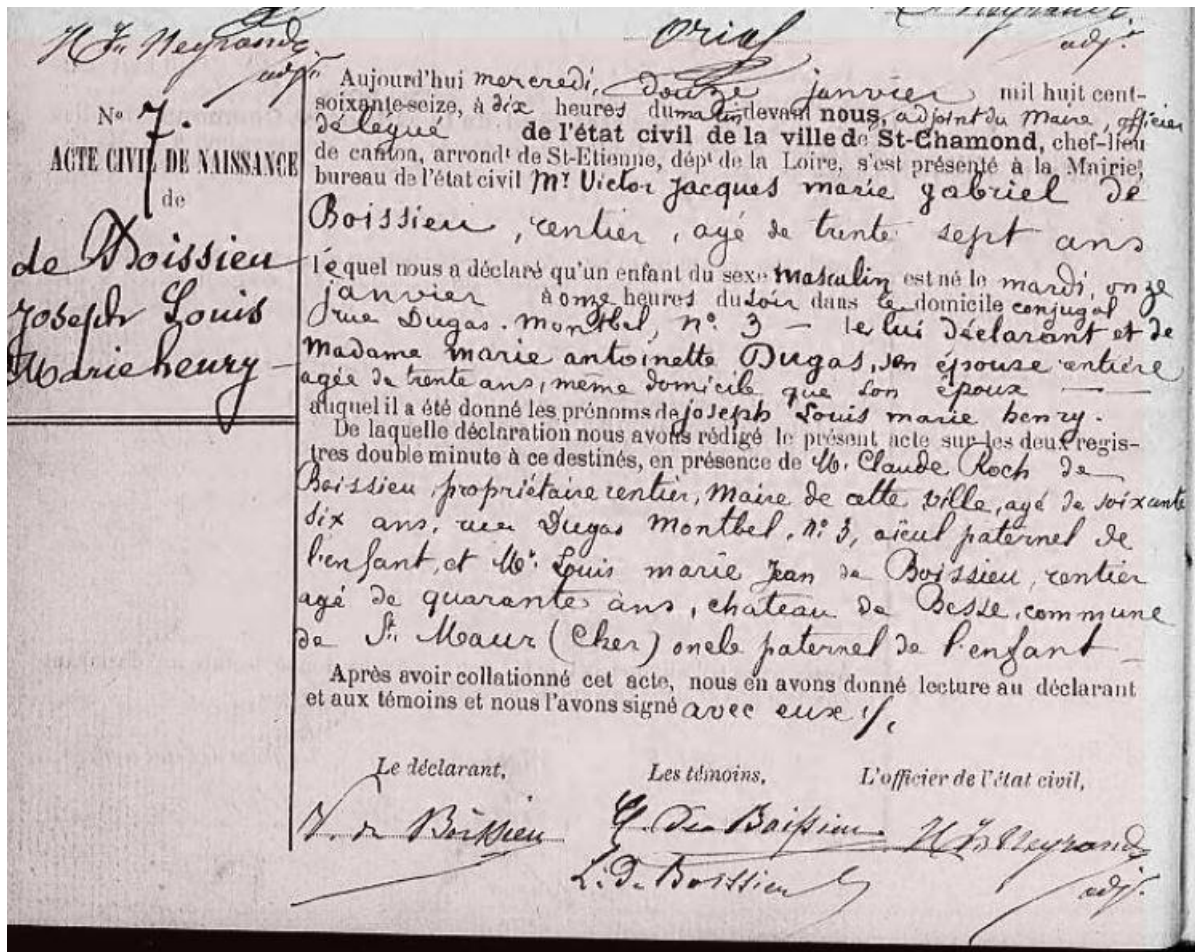 H Fs Neyrand
adjt.
Oriol
Neyrand
adjt.
No 7.
ACTE CIVIL DE NAISSANCE
de
de Boissieu
Joseph Louis
Marie henry
Aujourd'hui mercredi, douze janvier mil huit cent-
soixante-seize, à dix heures du matin devant nous, adjoint du Maire, officier
délégué de l'état civil de la ville de St-Chamond, chef-lieu
de canton, arrondt de St-Etienne, dépt de la Loire, s'est présenté à la Mairie,
bureau de l'état civil Mr Victor Jacques marie gabriel de
Boissieu, rentier, agé de trente sept ans
lequel nous a déclaré qu'un enfant du sexe masculin est né le mardi, onze
janvier à onze heures du soir dans le domicile conjugal
rue Dugas-Montbel, no. 3 — de lui déclarant et de
Madame marie antoinette Dugas, son épouse rentière
agée de trente ans, même domicile que son époux —
auquel il a été donné les prénoms de joseph Louis marie henry.
De laquelle déclaration nous avons rédigé le présent acte sur les deux regis-
tres double minute à ce destinés, en présence de M. Claude Roch de
Boissieu, propriétaire rentier, Maire de cette ville, agé de soixante
six ans, rue Dugas Montbel, no. 3, aïeul paternel de
l'enfant, et Mr. Louis marie Jean de Boissieu, rentier
agé de quarante ans, château de Besse, commune
de St. Maur (Cher) oncle paternel de l'enfant —
Après avoir collationné cet acte, nous en avons donné lecture au déclarant
et aux témoins et nous l'avons signé avec eux
Le déclarant, Les témoins, L'officier de l'état civil,
V. de Boissieu C. De Boissieu H Fs Neyrand
L. De Boissieu adjt.